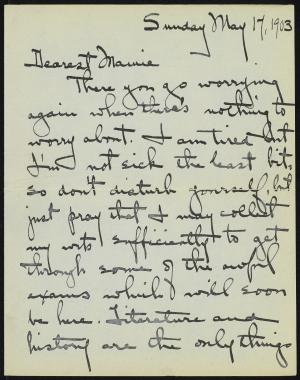 Sunday May 17, 1903
Dearest Mamie
There you go worrying
again when there's nothing to
worry about. I am tired but
I'm not sick the least bit,
so don't disturb yourself, but
just pray that I may collect
my wits sufficiently to get
through some of the awful
exams which will soon
be here. Literature and
history are the only things